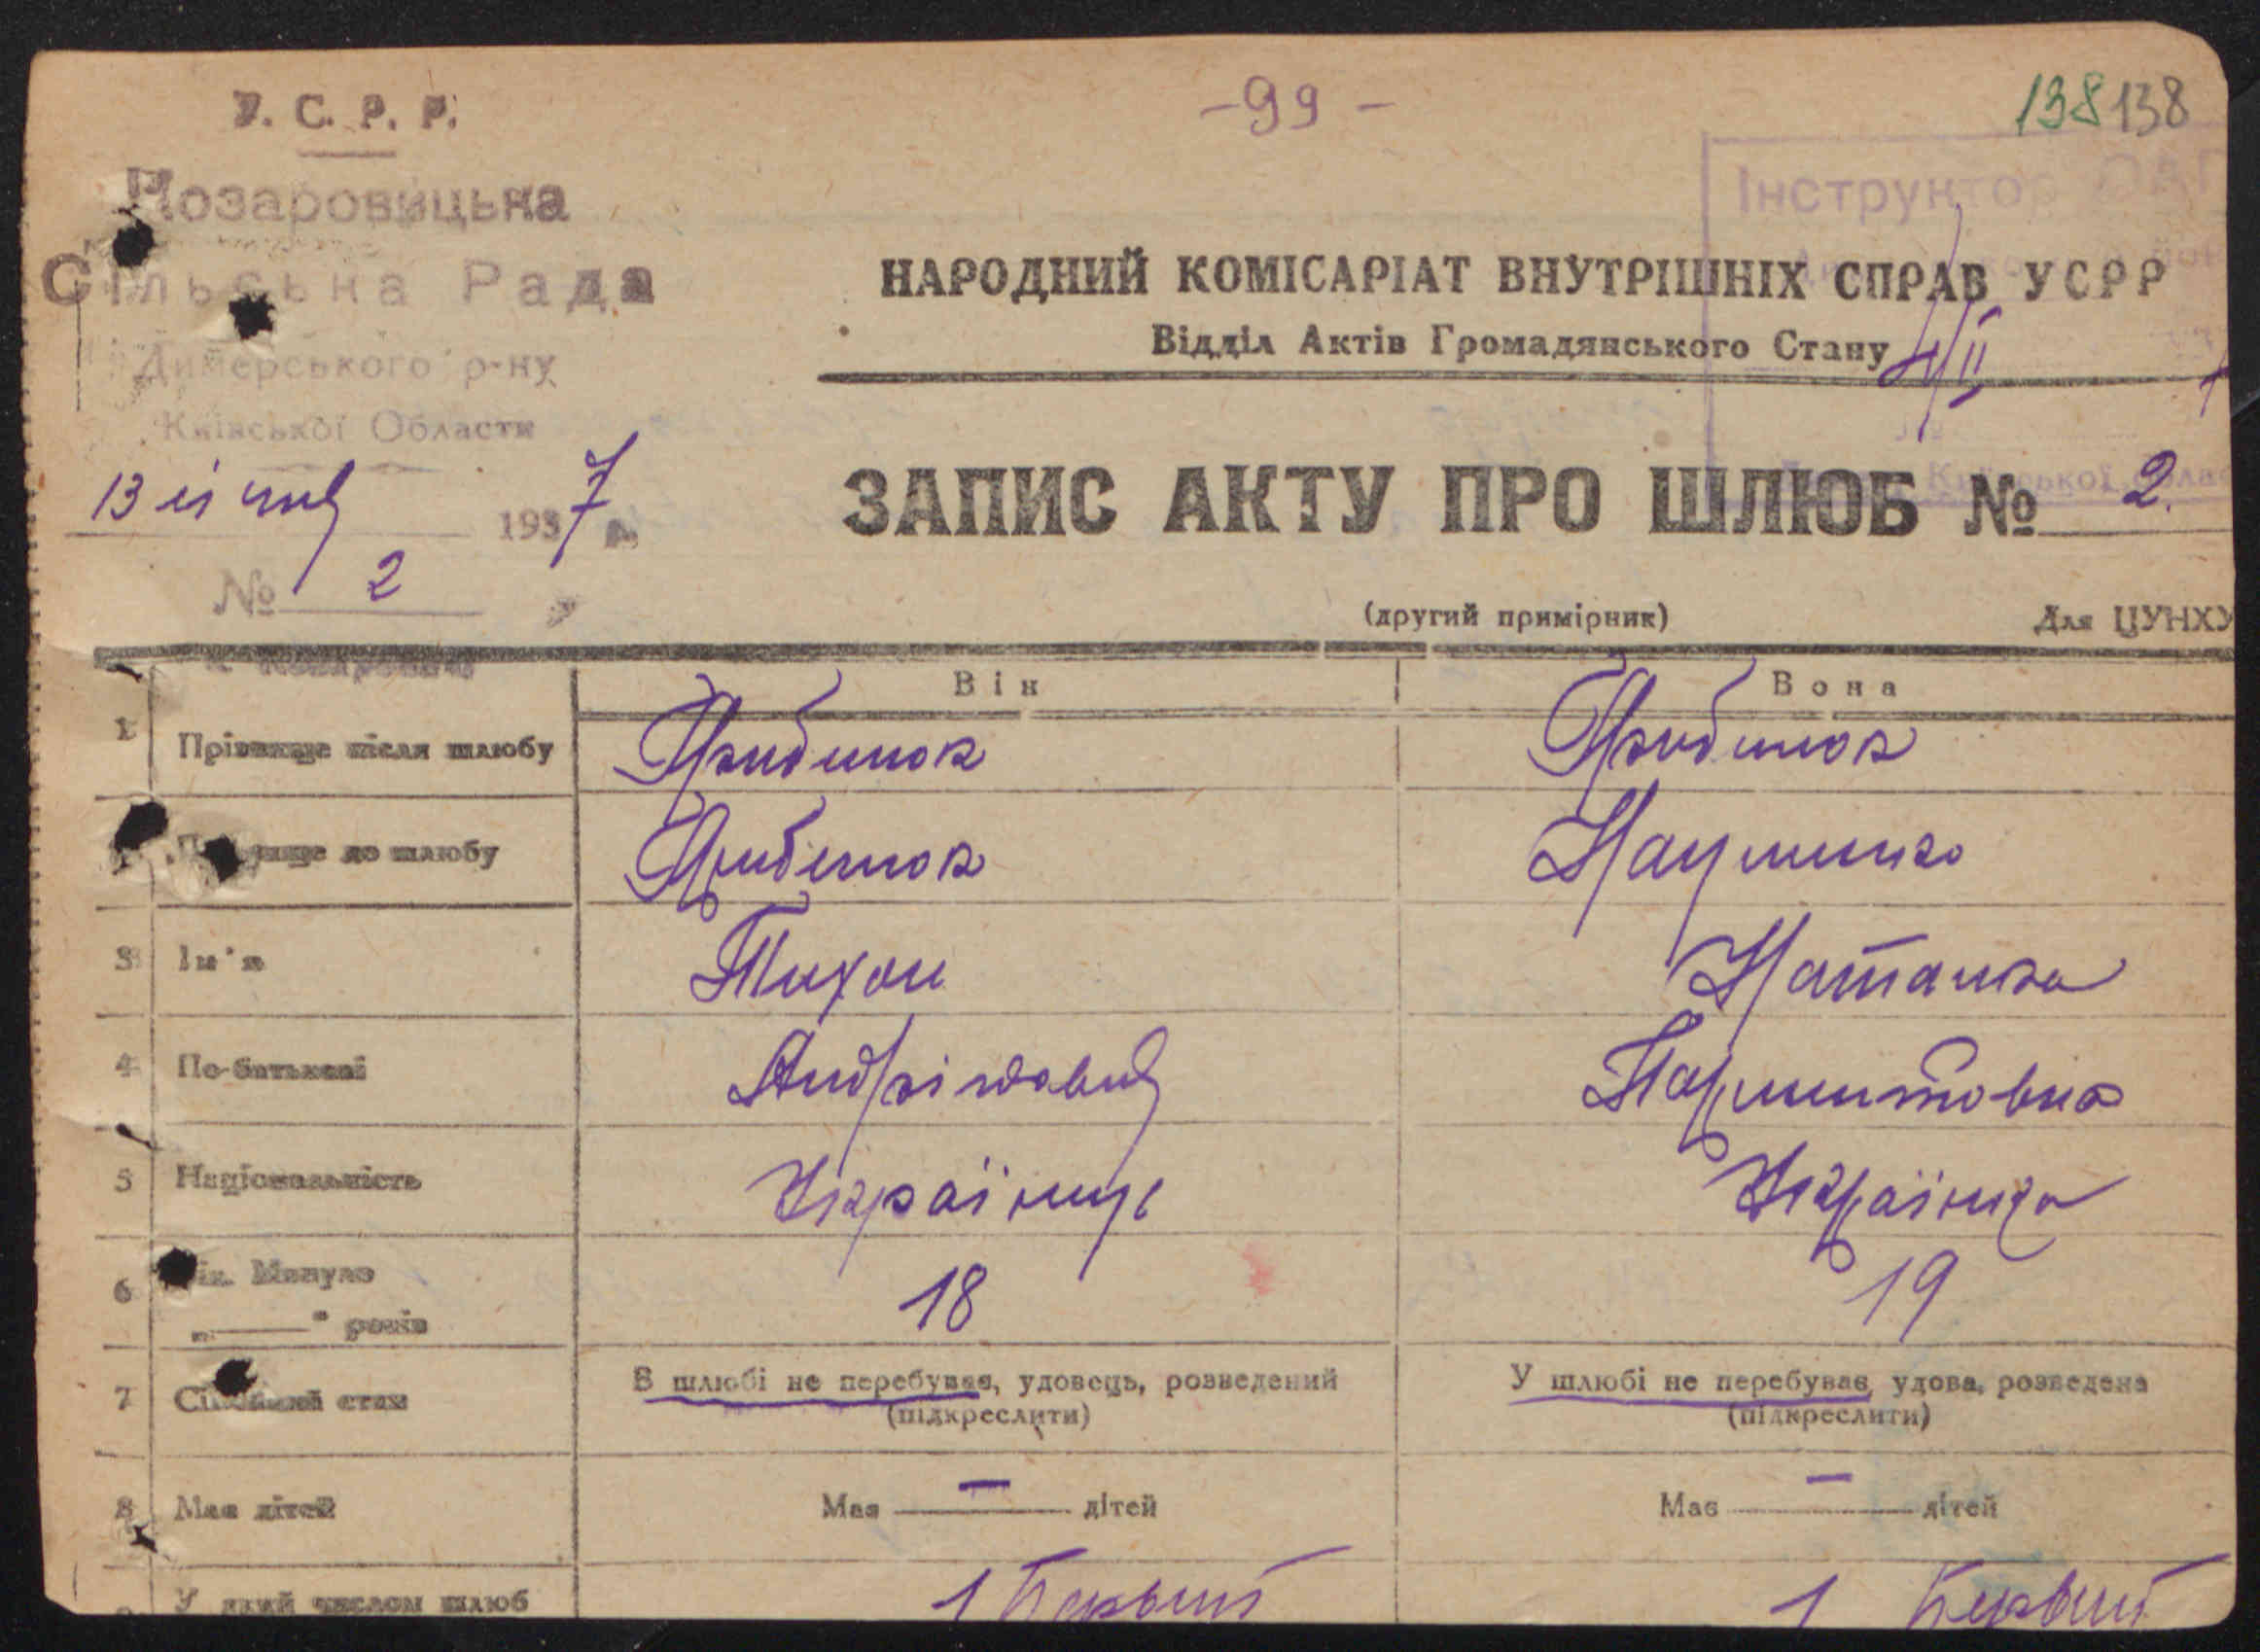 У. С. Р. Р.
- 99 -
138 138
Козаровицька
Сільська Рада
Димерського р-ну
Київської Области
13 січня 1937
№ 2
Інструктор
НАРОДНИЙ КОМІСАРІАТ ВНУТРІШНІХ СПРАВ УСРР
Відділ Актів Громадянського Стану
ЗАПИС АКТУ ПРО ШЛЮБ № 2.
(другий примірник) Для ЦУНХУ
Він Вона
1 Прізвище після шлюбу
Прізвище до шлюбу Науминко
3 Ім'я Тихон Наталка
4 По-батькові Андріювич
5 Національність Українць Українка
6 Вік. Минуло 18 19
„ — " років
7 Сімейний стан В шлюбі не перебував, удовець, розведений У шлюбі не перебував, удова, розведена
(підкреслити) (підкреслити)
8 Має дітей Має — дітей Має — дітей
У який числом шлюб 1 Первый 1 Первый